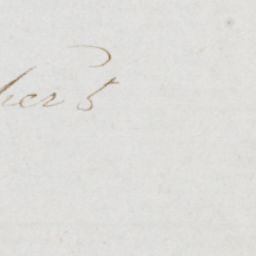 ber 5